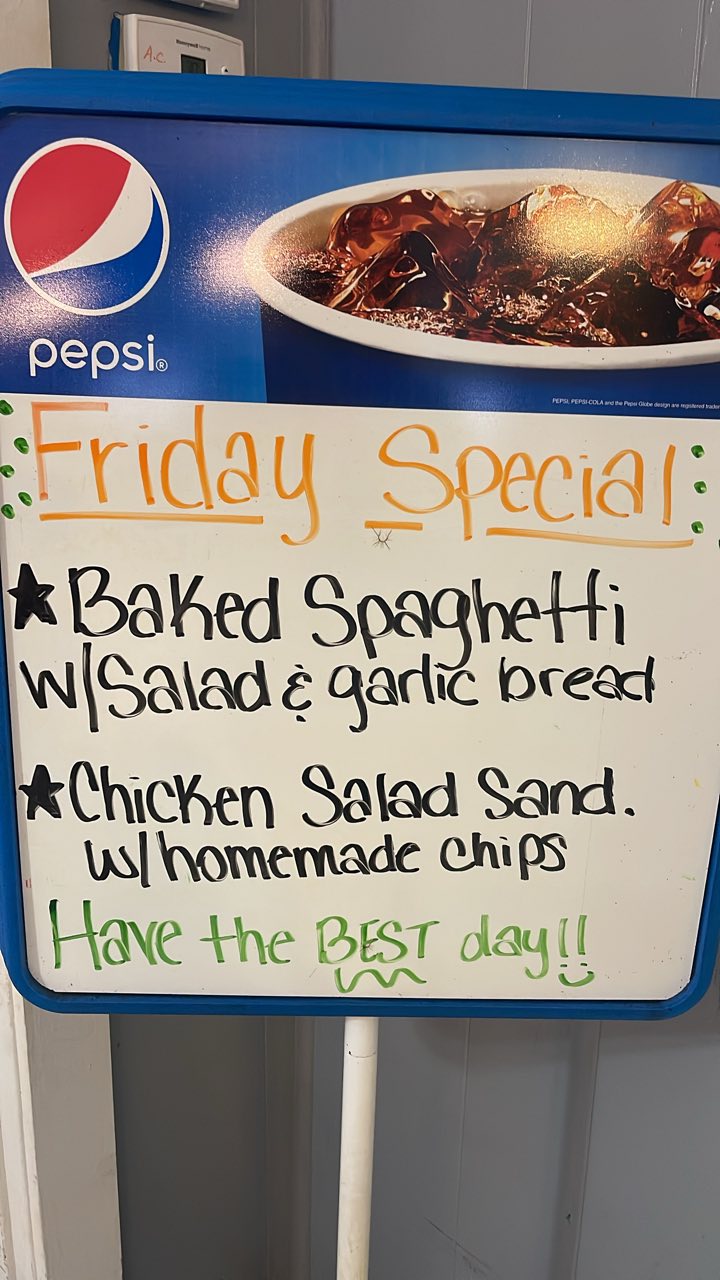 A.C.
Honeywell Home
pepsi®
PEPSI, PEPSI-COLA and the Pepsi Globe design are registered
Friday Special
★Baked Spaghetti
w/Salad & garlic bread
★Chicken Salad Sand.
w/homemade chips
Have the BEST day!!